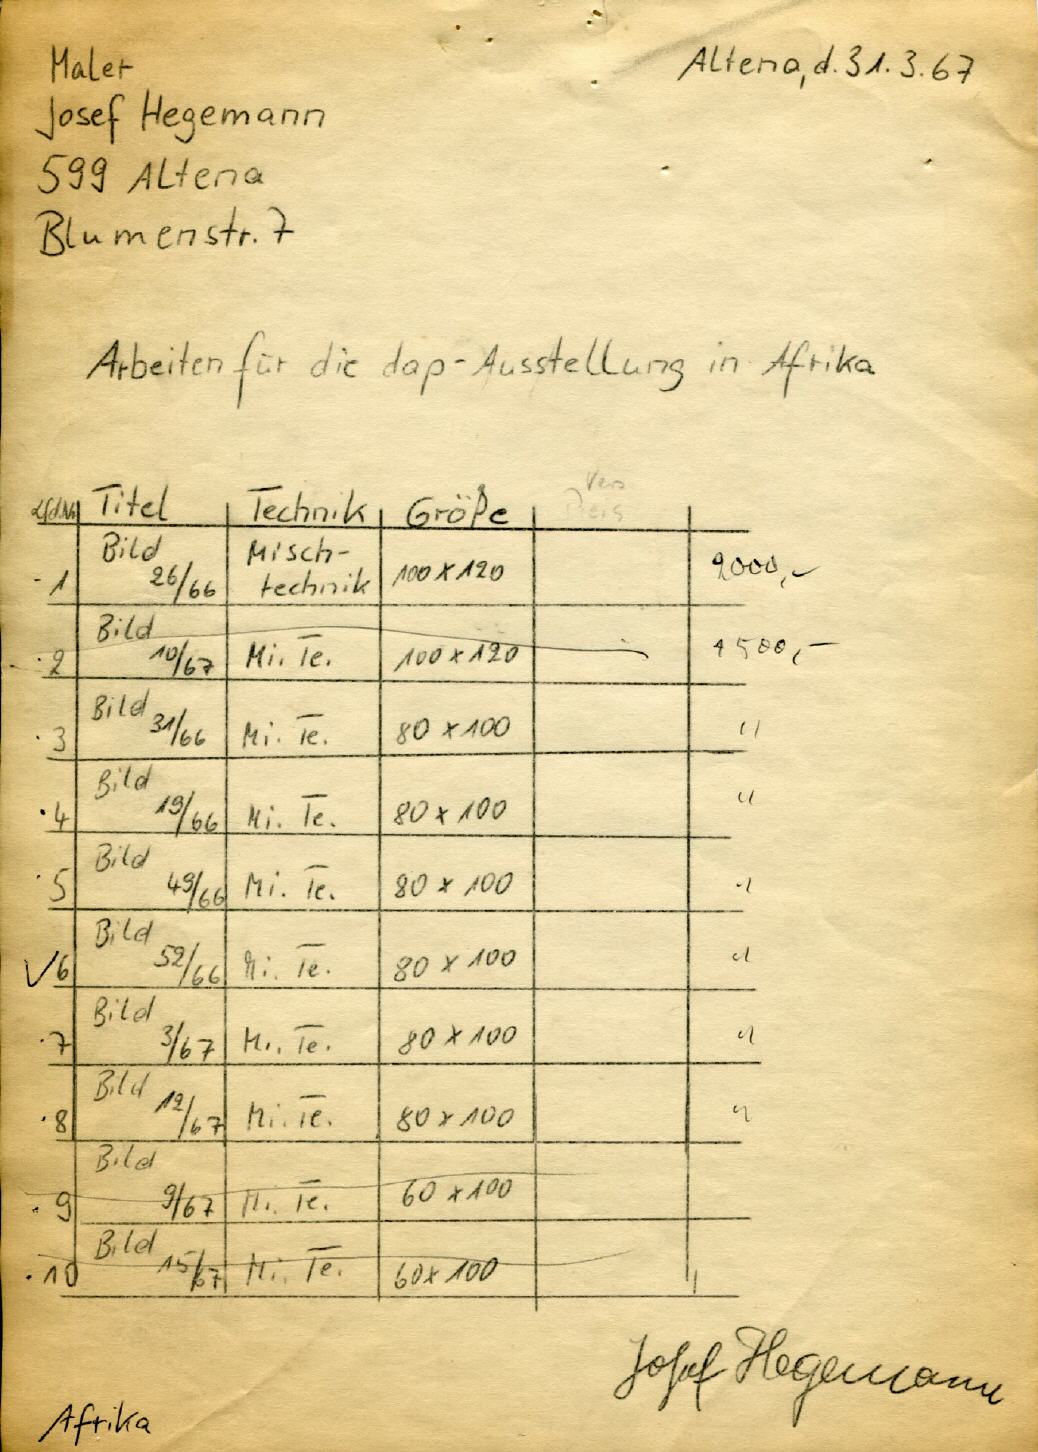 Maler
Josef Hegemann
599 Altena
Blumenstr. 7
Altena, d. 31.3.67
Arbeiten für die dap-Ausstellung in Afrika
Lfd.Nr. Titel Technik Größe Vers Preis
1 Bild 26/66 Misch-technik 100 x 120 2000,-
2 Bild 10/67 Mi. Te. 100 x 120 1500,-
3 Bild 31/66 Mi. Te. 80 x 100 "
4 Bild 19/66 Mi. Te. 80 x 100 "
5 Bild 49/66 Mi. Te. 80 x 100 "
✓6 Bild 52/66 Mi. Te. 80 x 100 "
7 Bild 3/67 Mi. Te. 80 x 100 "
8 Bild 12/67 Mi. Te. 80 x 100 "
9 Bild 9/67 Mi. Te. 60 x 100
10 Bild 15/67 Mi. Te. 60 x 100
Josef Hegemann
Afrika